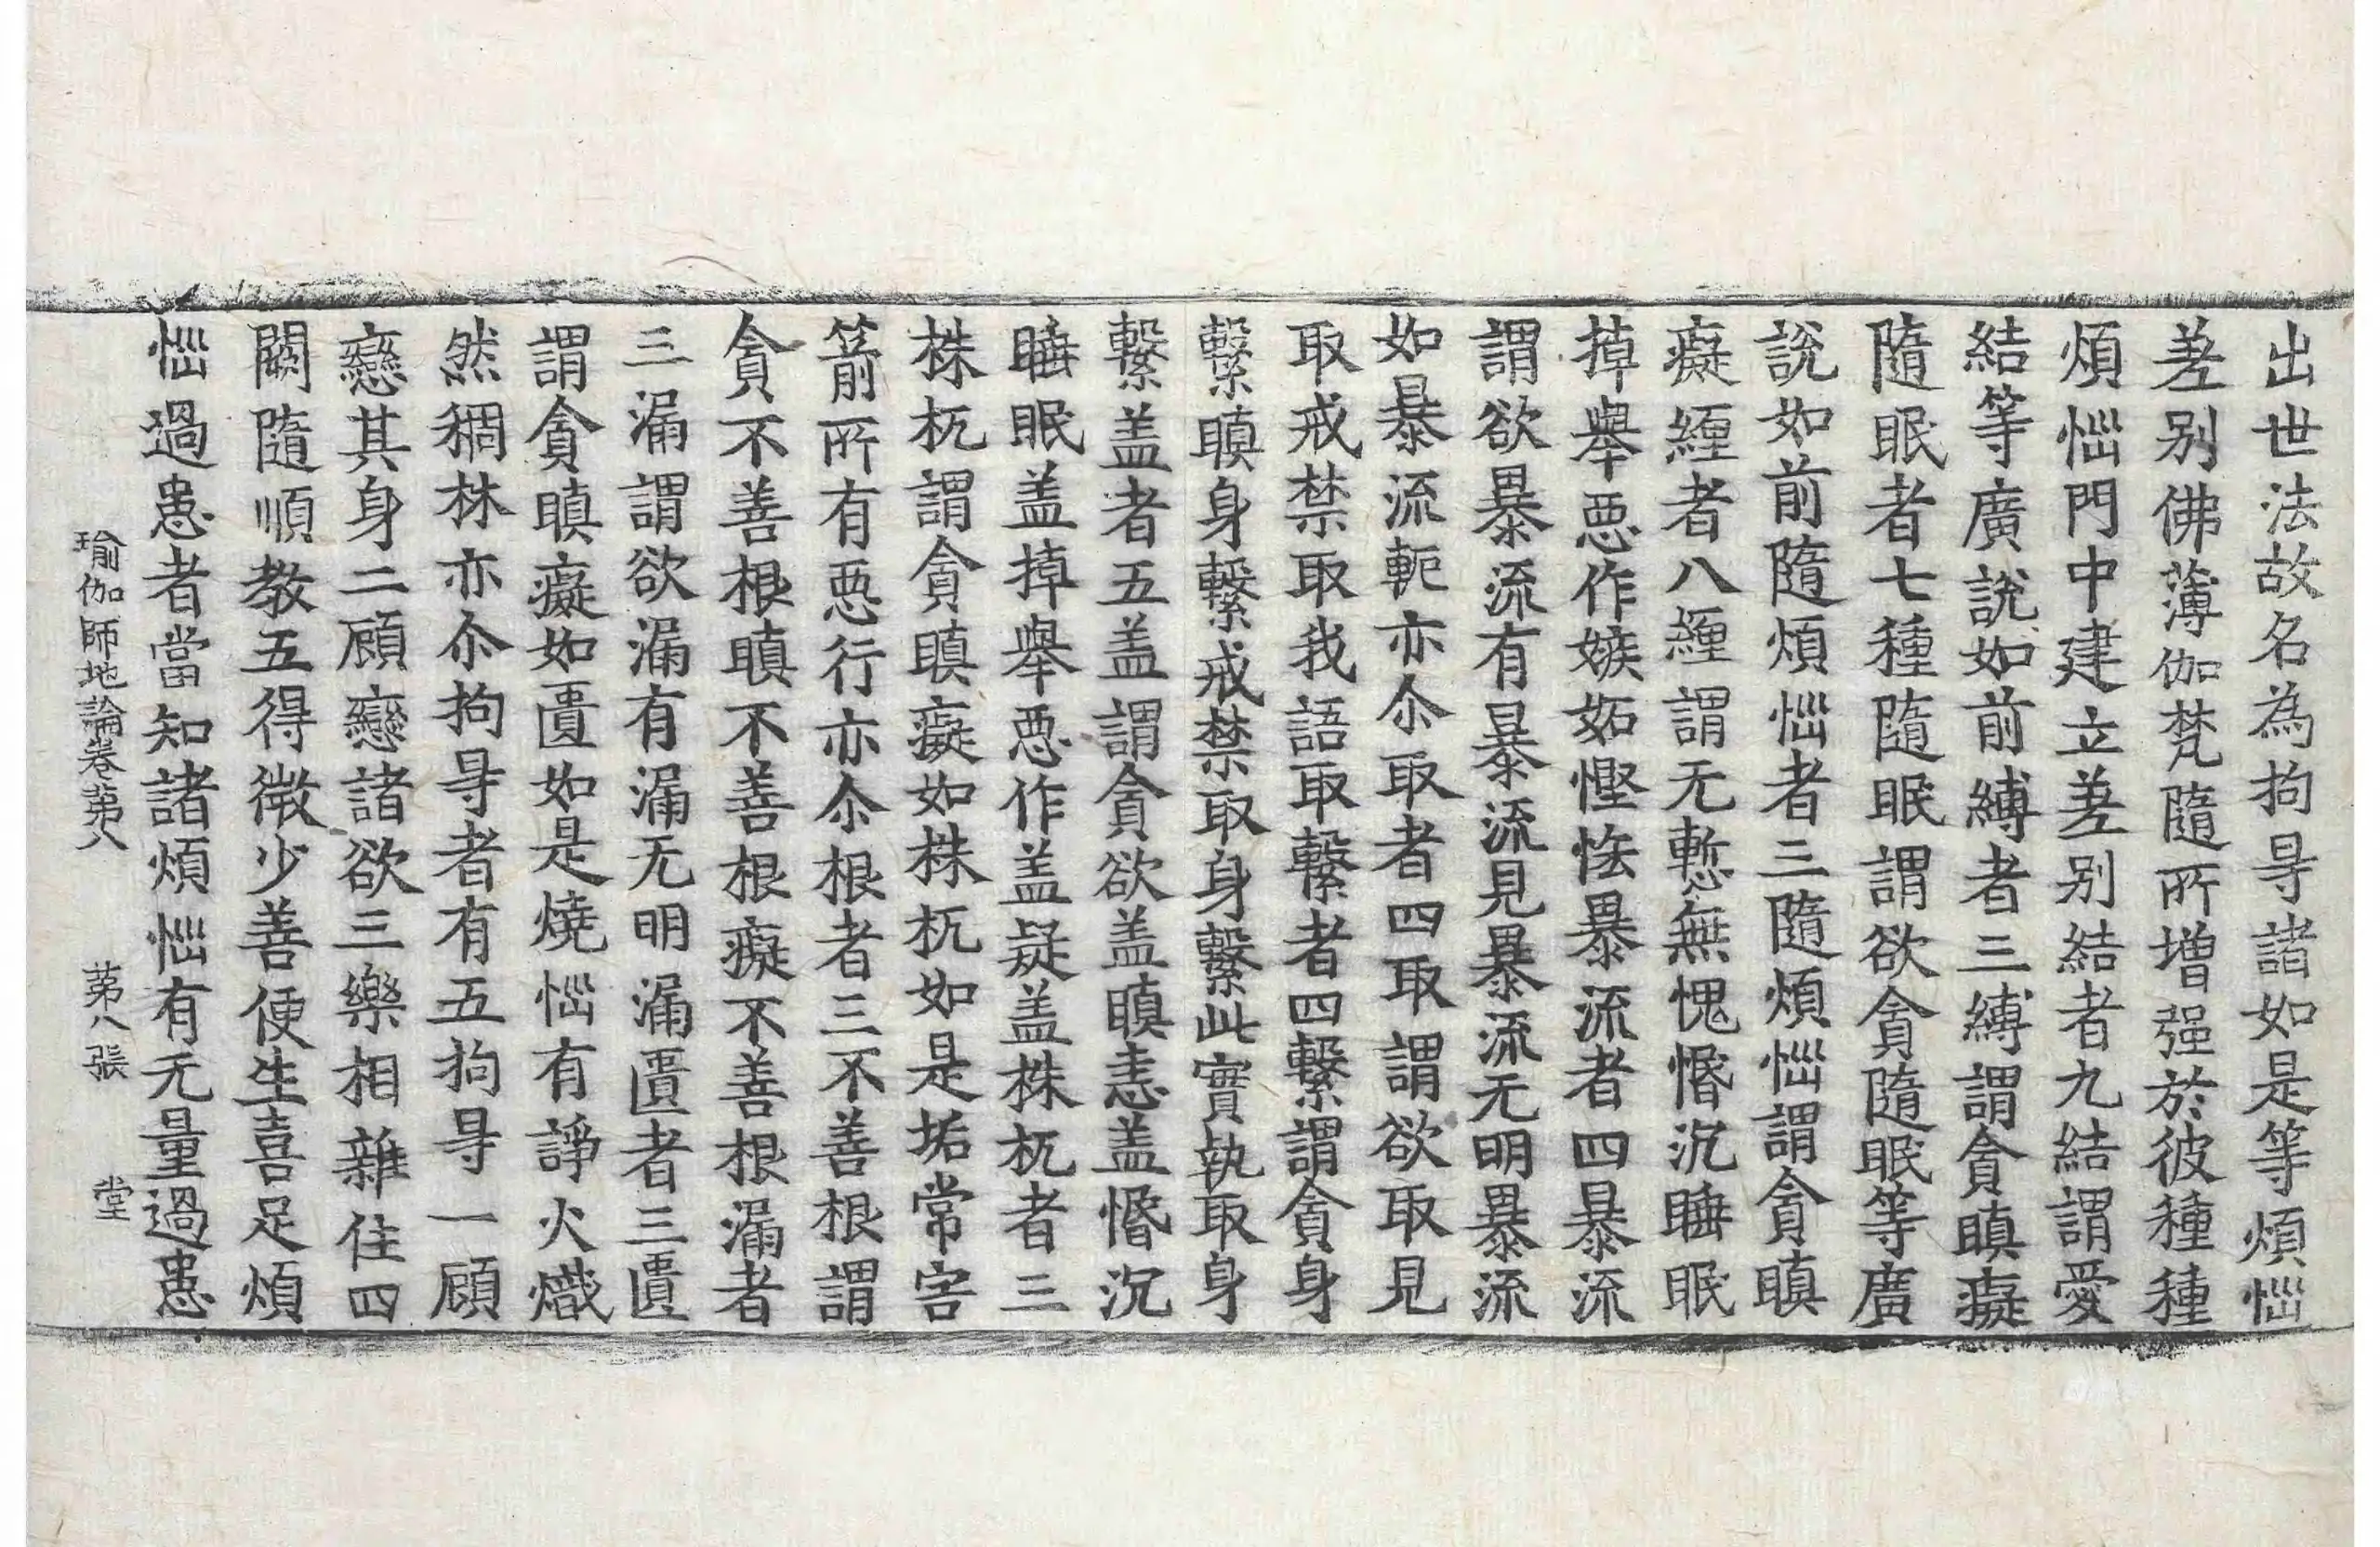 出世法故名為拘㝵諸如是等煩惱
差別佛薄伽梵隨所增强於彼種種
煩惱門中建立差別結者九結謂愛
結等廣說如前縛者三縛謂貪瞋癡
隨眠者七種隨眠謂欲貪隨眠等廣
說如前隨煩惱者三隨煩惱謂貪瞋
癡纏者八纏謂无慙無愧惛沉睡眠
掉舉惡作嫉妬慳悋暴流者四暴流
謂欲暴流有暴流見暴流无明暴流
如暴流軛亦尒取者四取謂欲取見
取戒禁取我語取繫者四繫謂貪身
繫瞋身繫戒禁取身繫此實執取身
繫盖者五盖謂貪欲盖瞋恚盖惛沉
睡眠盖掉舉惡作盖疑盖株杌者三
株杌謂貪瞋癡如株杌如是垢常害
箭所有惡行亦尒根者三不善根謂
貪不善根瞋不善根癡不善根漏者
三漏謂欲漏有漏无明漏匱者三匱
謂貪瞋癡如匱如是燒惱有諍火熾
然稠林亦尒拘㝵者有五拘㝵一顧
戀其身二顧戀諸欲三樂相雜住四
闕隨順教五得微少善便生喜足煩
惱過患者當知諸煩惱有无量過患
瑜伽師地論卷苐八 苐八張 堂